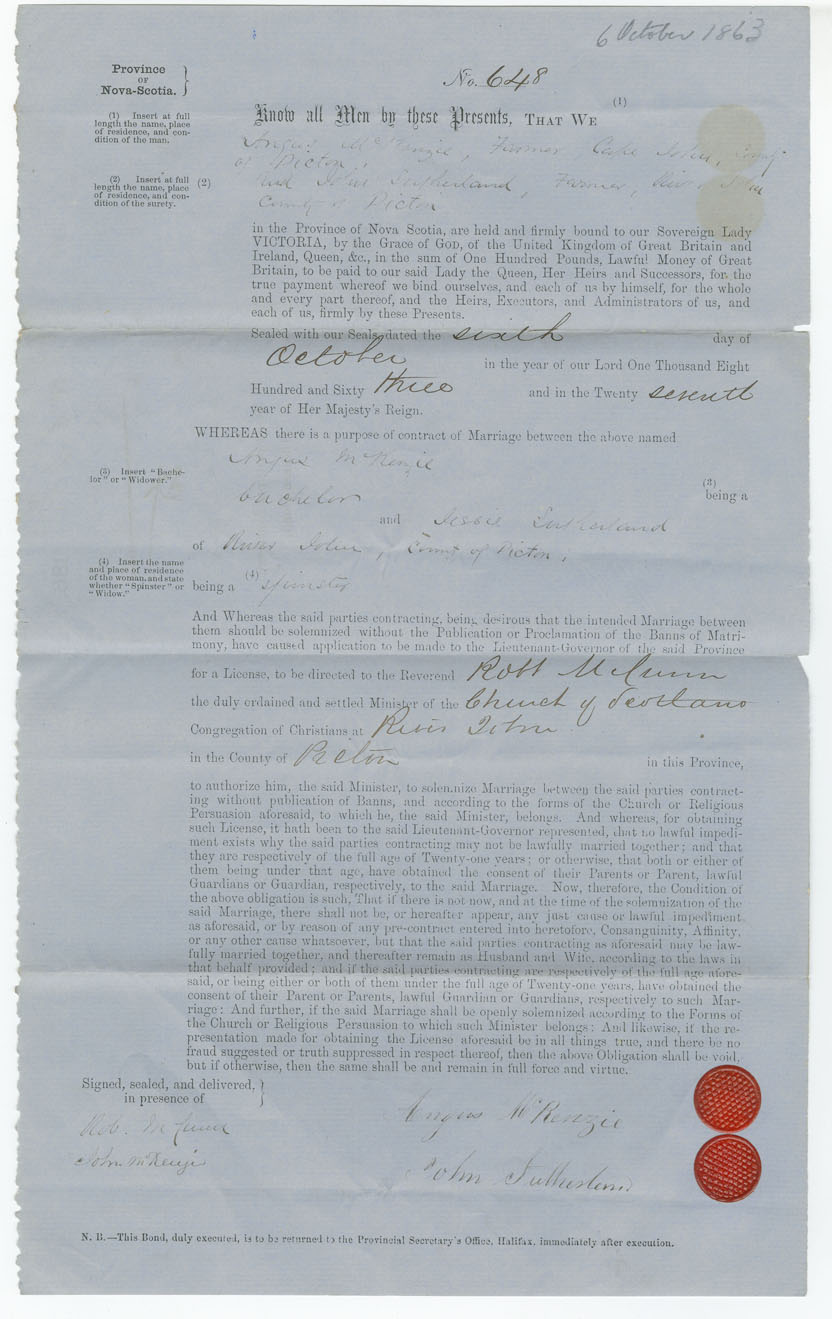 6 October 1863
Province
OF
Nova-Scotia.
No. 648
(1) Insert at full
length the name, place
of residence, and con-
dition of the man.
Know all Men by these Presents, THAT WE (1)
Angus McKenzie, Farmer, Cape John, County
of Pictou,
(2) Insert at full
length the name, place
of residence, and con-
dition of the surety.
(2) and John Sutherland, Farmer, River John
County of Pictou
in the Province of Nova Scotia, are held and firmly bound to our Sovereign Lady
VICTORIA, by the Grace of GOD, of the United Kingdom of Great Britain and
Ireland, Queen, &c., in the sum of One Hundred Pounds, Lawful Money of Great
Britain, to be paid to our said Lady the Queen, Her Heirs and Successors, for the
true payment whereof we bind ourselves, and each of us by himself, for the whole
and every part thereof, and the Heirs, Executors, and Administrators of us, and
each of us, firmly by these Presents.
Sealed with our Seals, dated the sixth day of
October in the year of our Lord One Thousand Eight
Hundred and Sixty three and in the Twenty seventh
year of Her Majesty's Reign.
WHEREAS there is a purpose of contract of Marriage between the above named
Angus McKenzie
(3) Insert "Bache-
lor" or "Widower."
(3)
being a
bachelor
and Jessie Sutherland
of River John, County of Pictou,
(4) Insert the name
and place of residence
of the woman, and state
whether "Spinster" or
"Widow."
being a (4) spinster
And Whereas the said parties contracting, being desirous that the intended Marriage between
them should be solemnized without the Publication or Proclamation of the Banns of Matri-
mony, have caused application to be made to the Lieutenant-Governor of the said Province
for a License, to be directed to the Reverend Robt McCunn
the duly ordained and settled Minister of the Church of Scotland
Congregation of Christians at River John
in the County of Pictou in this Province,
to authorize him, the said Minister, to solemnize Marriage between the said parties contract-
ing without publication of Banns, and according to the forms of the Church or Religious
Persuasion aforesaid, to which he, the said Minister, belongs. And whereas, for obtaining
such License, it hath been to the said Lieutenant-Governor represented, that no lawful impedi-
ment exists why the said parties contracting may not be lawfully married together; and that
they are respectively of the full age of Twenty-one years; or otherwise, that both or either of
them being under that age, have obtained the consent of their Parents or Parent, lawful
Guardians or Guardian, respectively, to the said Marriage. Now, therefore, the Condition of
the above obligation is such, That if there is not now, and at the time of the solemnization of the
said Marriage, there shall not be, or hereafter appear, any just cause or lawful impediment,
as aforesaid, or by reason of any pre-contract entered into heretofore, Consanguinity, Affinity,
or any other cause whatsoever, but that the said parties contracting as aforesaid may be law-
fully married together, and thereafter remain as Husband and Wife, according to the laws in
that behalf provided; and if the said parties contracting are respectively of the full age afore-
said, or being either or both of them under the full age of Twenty-one years, have obtained the
consent of their Parent or Parents, lawful Guardian or Guardians, respectively to such Mar-
riage: And further, if the said Marriage shall be openly solemnized according to the Forms of
the Church or Religious Persuasion to which such Minister belongs: And likewise, if the re-
presentation made for obtaining the License aforesaid be in all things true, and there be no
fraud suggested or truth suppressed in respect thereof, then the above Obligation shall be void,
but if otherwise, then the same shall be and remain in full force and virtue.
Signed, sealed, and delivered,
in presence of
Rob. McCunn
John McKenzie
Angus McKenzie
John Sutherland
N. B.—This Bond, duly executed, is to be returned to the Provincial Secretary's Office, Halifax, immediately after execution.